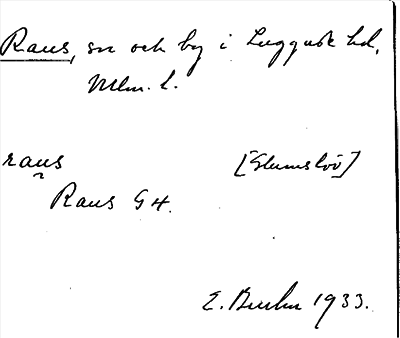 Raus, sn och by i Luggude hd,
Mlm. l.
raus [Glumslöv]
Raus G4.
E. Bruhn 1933.